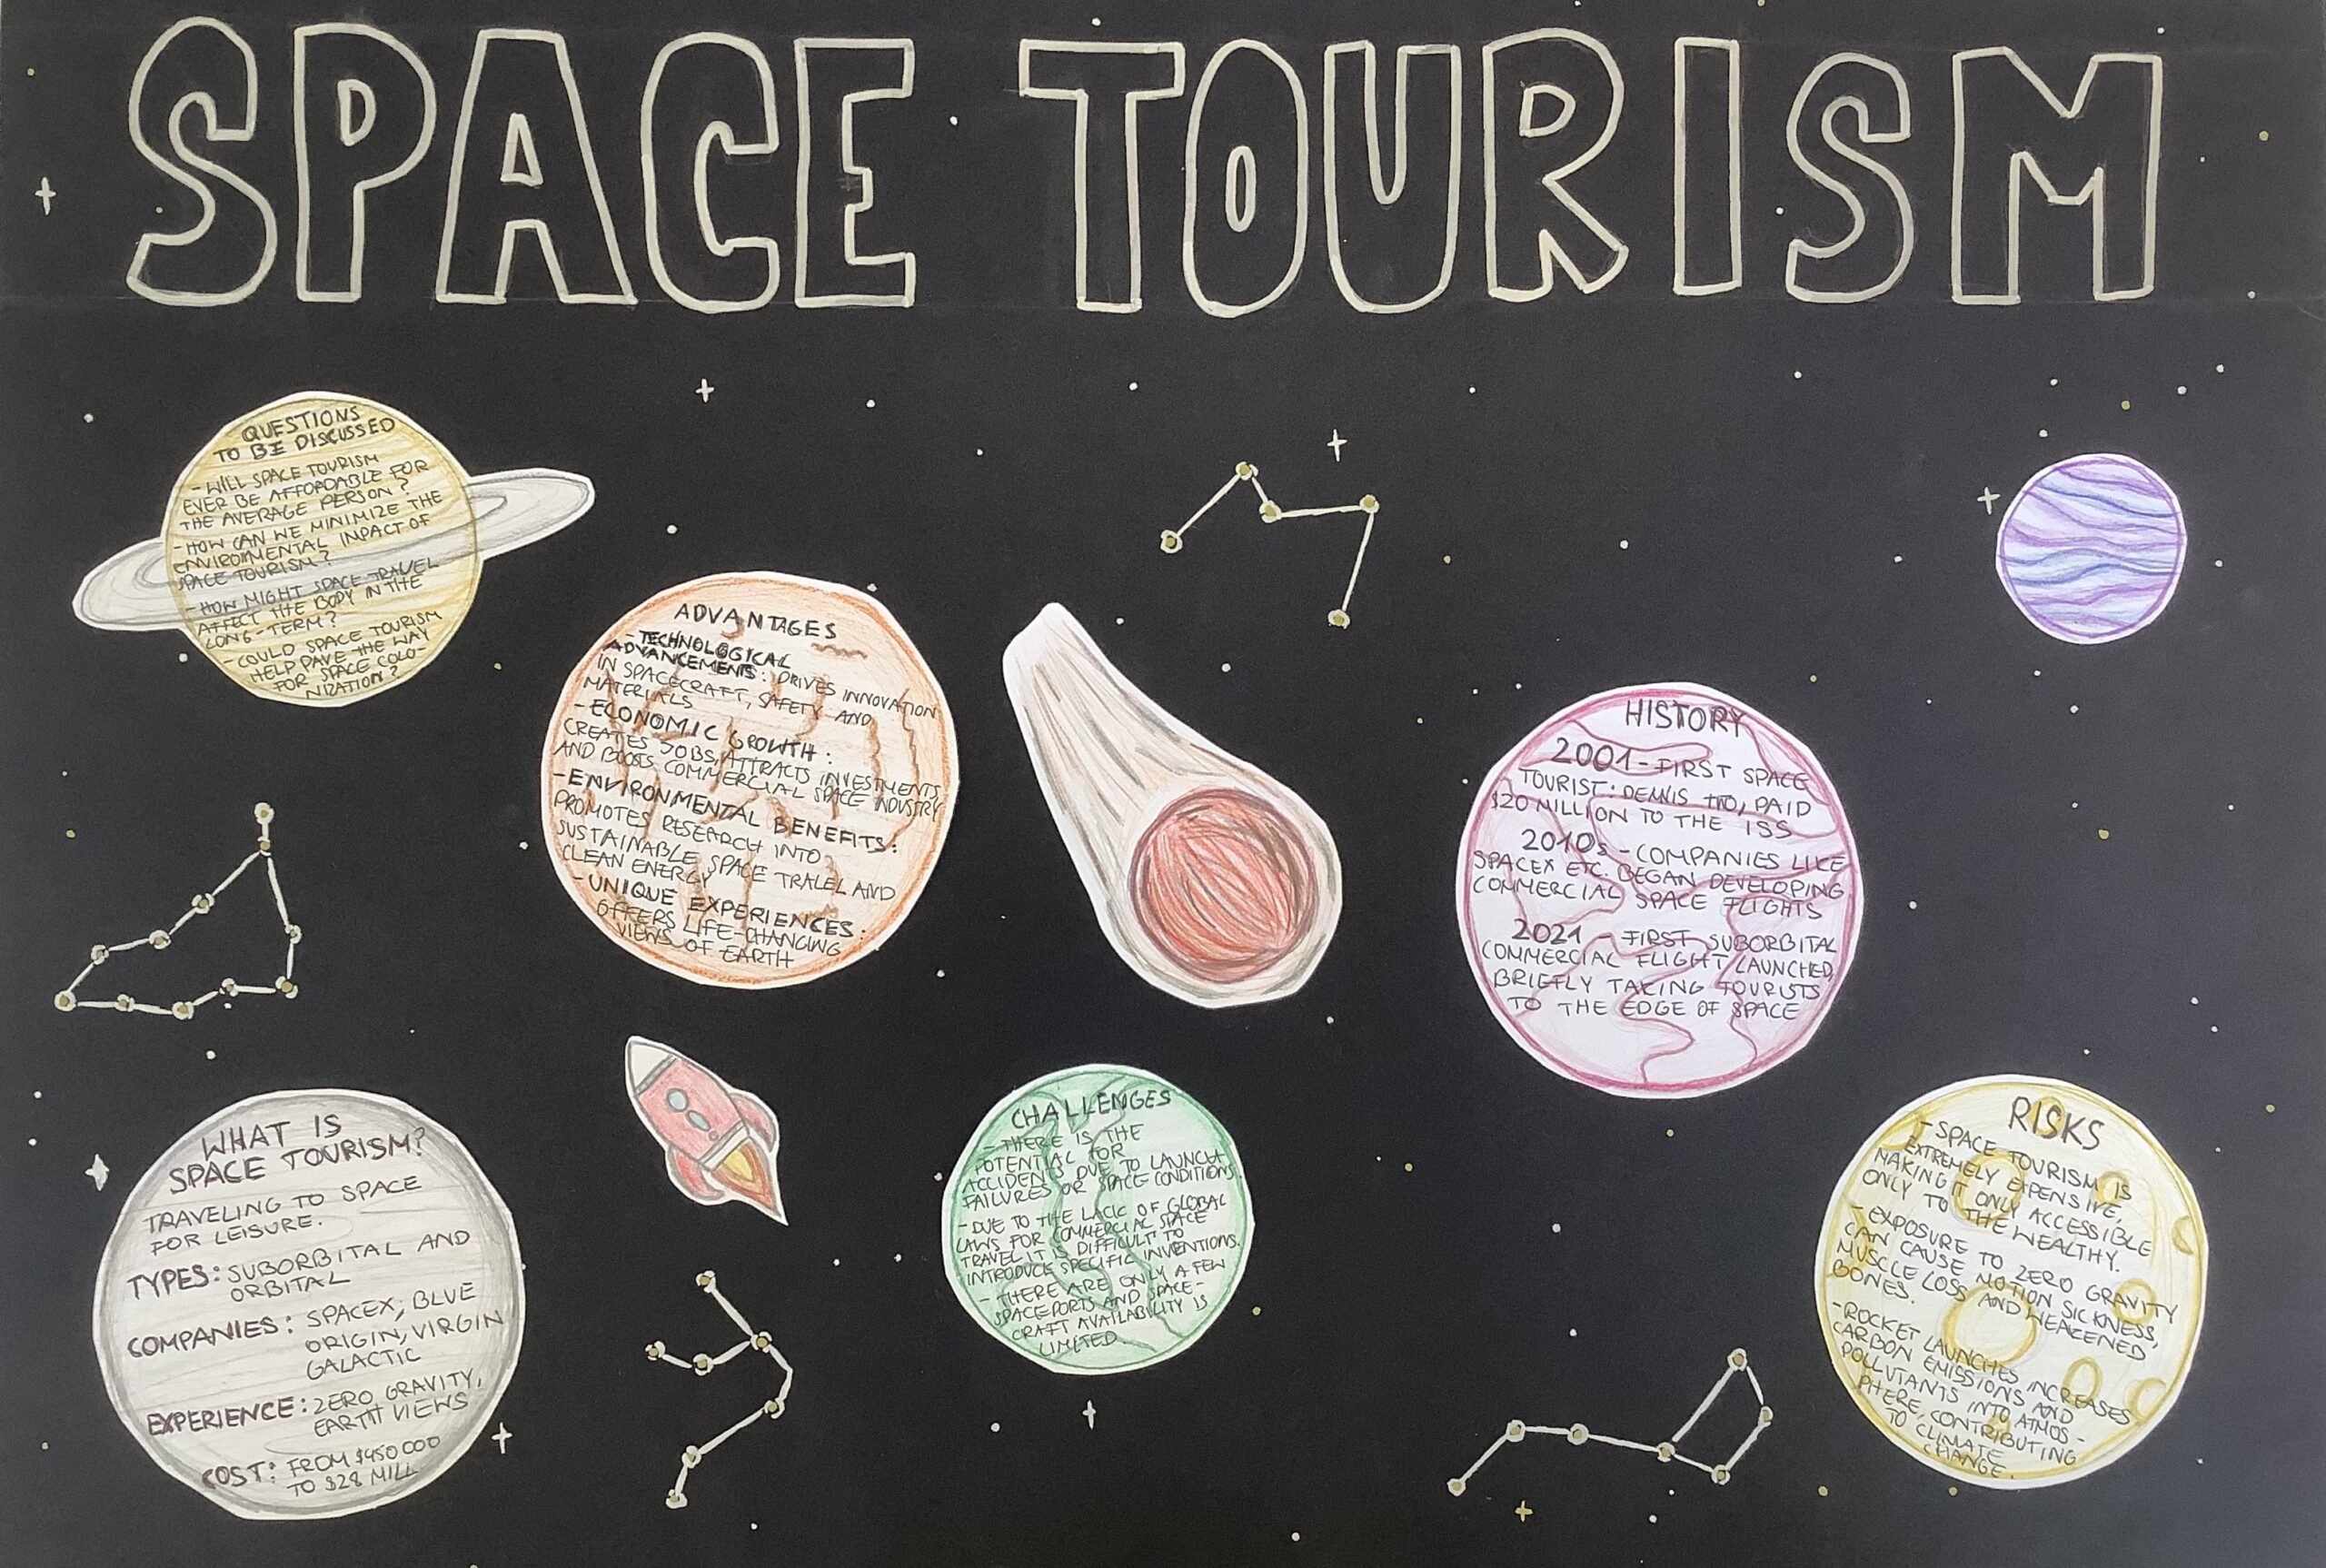 SPACE TOURISM
QUESTIONS
TO BE DISCUSSED
- WILL SPACE TOURISM
EVER BE AFFORDABLE FOR
THE AVERAGE PERSON?
- HOW CAN WE MINIMIZE THE
ENVIRONMENTAL IMPACT OF
SPACE TOURISM?
- HOW MIGHT SPACE TRAVEL
AFFECT THE BODY IN THE
LONG-TERM?
- COULD SPACE TOURISM
HELP PAVE THE WAY
FOR SPACE COLO-
NIZATION?
ADVANTAGES
- TECHNOLOGICAL
ADVANCEMENTS: DRIVES INNOVATION
IN SPACECRAFT, SAFETY AND
MATERIALS
- ECONOMIC GROWTH:
CREATES JOBS, ATTRACTS INVESTMENTS
AND BOOSTS COMMERCIAL SPACE INDUSTRY
- ENVIRONMENTAL BENEFITS:
PROMOTES RESEARCH INTO
SUSTAINABLE SPACE TRALEL AND
CLEAN ENERGY
- UNIQUE EXPERIENCES:
OFFERS LIFE-CHANGING
VIEWS OF EARTH
HISTORY
2001 - FIRST SPACE
TOURIST: DENNIS TITO, PAID
$20 MILLION TO THE ISS
2010s - COMPANIES LIKE
SPACEX ETC. BEGAN DEVELOPING
COMMERCIAL SPACE FLIGHTS
2021 - FIRST SUBORBITAL
COMMERCIAL FLIGHT LAUNCHED,
BRIEFLY TAKING TOURISTS
TO THE EDGE OF SPACE
WHAT IS
SPACE TOURISM?
TRAVELING TO SPACE
FOR LEISURE.
TYPES: SUBORBITAL AND
ORBITAL
COMPANIES: SPACEX, BLUE
ORIGIN, VIRGIN
GALACTIC
EXPERIENCE: ZERO GRAVITY,
EARTH VIEWS
COST: FROM $450 000
TO $28 MILL.
CHALLENGES
- THERE IS THE
POTENTIAL FOR
ACCIDENTS DUE TO LAUNCH
FAILURES OR SPACE CONDITIONS.
- DUE TO THE LACK OF GLOBAL
LAWS FOR COMMERCIAL SPACE
TRAVEL IT IS DIFFICULT TO
INTRODUCE SPECIFIC INVENTIONS.
- THERE ARE ONLY A FEW
SPACEPORTS AND SPACE-
CRAFT AVAILABILITY IS
LIMITED
RISKS
- SPACE TOURISM IS
EXTREMELY EXPENSIVE,
MAKING IT ONLY ACCESSIBLE
ONLY TO THE WEALTHY.
- EXPOSURE TO ZERO GRAVITY
CAN CAUSE MOTION SICKNESS,
MUSCLE LOSS AND WEAKENED
BONES.
- ROCKET LAUNCHES INCREASES
CARBON EMISSIONS AND
POLLUTANTS INTO ATMOS-
PHERE, CONTRIBUTING
TO CLIMATE
CHANGE.